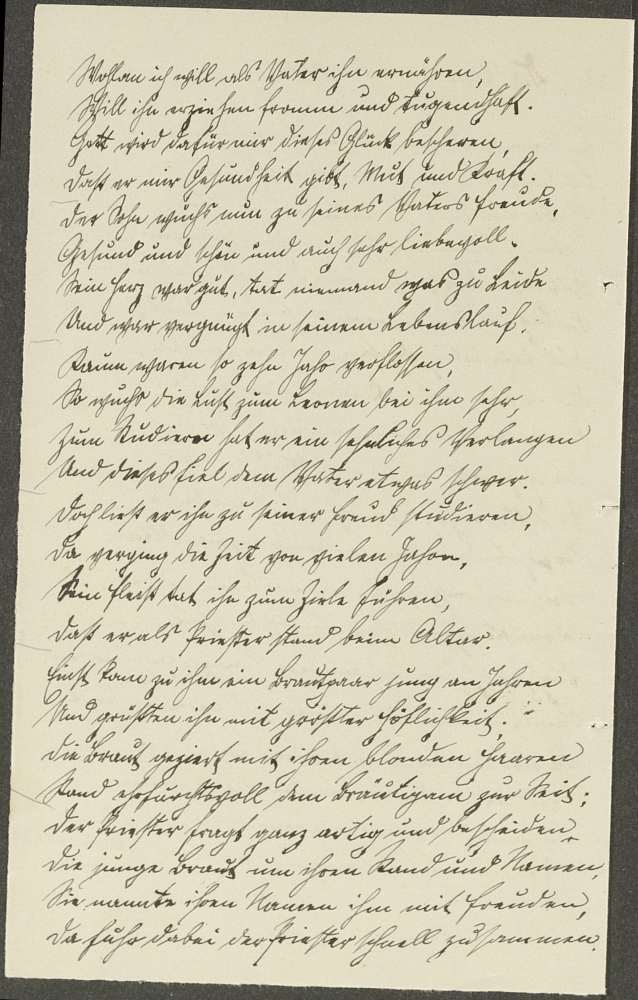 Wohlan ich will als Vater ihn ernähren,
Will ihn erziehen fromm und tugendhaft.
Gott wird dafür mir dieses Glück bescheren,
Daß er mir Gesundheit gibt, Mut und Kraft.
Der Sohn wuchs nun zu seines Vaters Freude,
Gesund und schön und auch sehr liebevoll.
Sein Herz war gut, tat niemand was zu Leide
Und war vergnügt in seinem Lebenslauf.
Kaum waren so zehn Jahr verflossen,
So wuchs die Lust zum Lernen bei ihm sehr,
Zum Studieren hat er ein sehnliches Verlangen
Und dieses fiel dem Vater etwas schwer.
Doch ließ er ihn zu seiner Freud studieren,
Da verging die Zeit von vielen Jahren,
Sein Fleiß tat ihn zum Ziele führen,
Daß er als Priester stand beim Altar.
Einst kam zu ihm ein Brautpaar jung an Jahren
Und grüßten ihn mit größter Höflichkeit.
Die Braut geziert mit ihren blonden Haaren
Stand ehrfurchtsvoll dem Bräutigam zur Seit;
Der Priester fragt ganz artig und bescheiden
Die junge Braut um ihren Stand und Namen,
Sie nannte ihren Namen ihm mit Freuden,
Da fuhr dabei der Priester schnell zusammen.